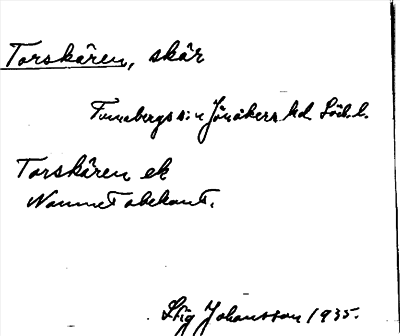 Torskären, skär
Tunabergs s:n Jönåkers hd Söd. l.
Torskären ek
Namnet obekant.
Stig Johansson 1935.